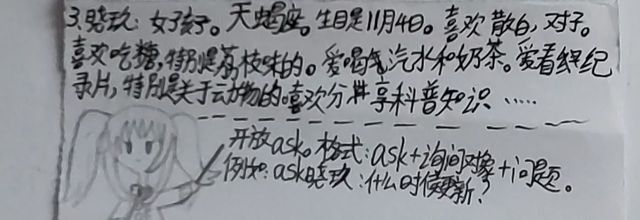 3.晓玖:女孩子。天蝎座。生日是11月4日。喜欢散白,对子。
喜欢吃糖,特别是荔枝味的。爱喝气汽水和奶茶。爱看纪
录片,特别是关于动物的。喜欢分享科普知识……
开放ask。格式:ask+询问对象+问题。
例如:ask晓玖:什么时候更新?